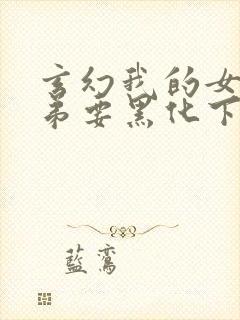 玄幻我的女
弟要黑化下
藍鸞